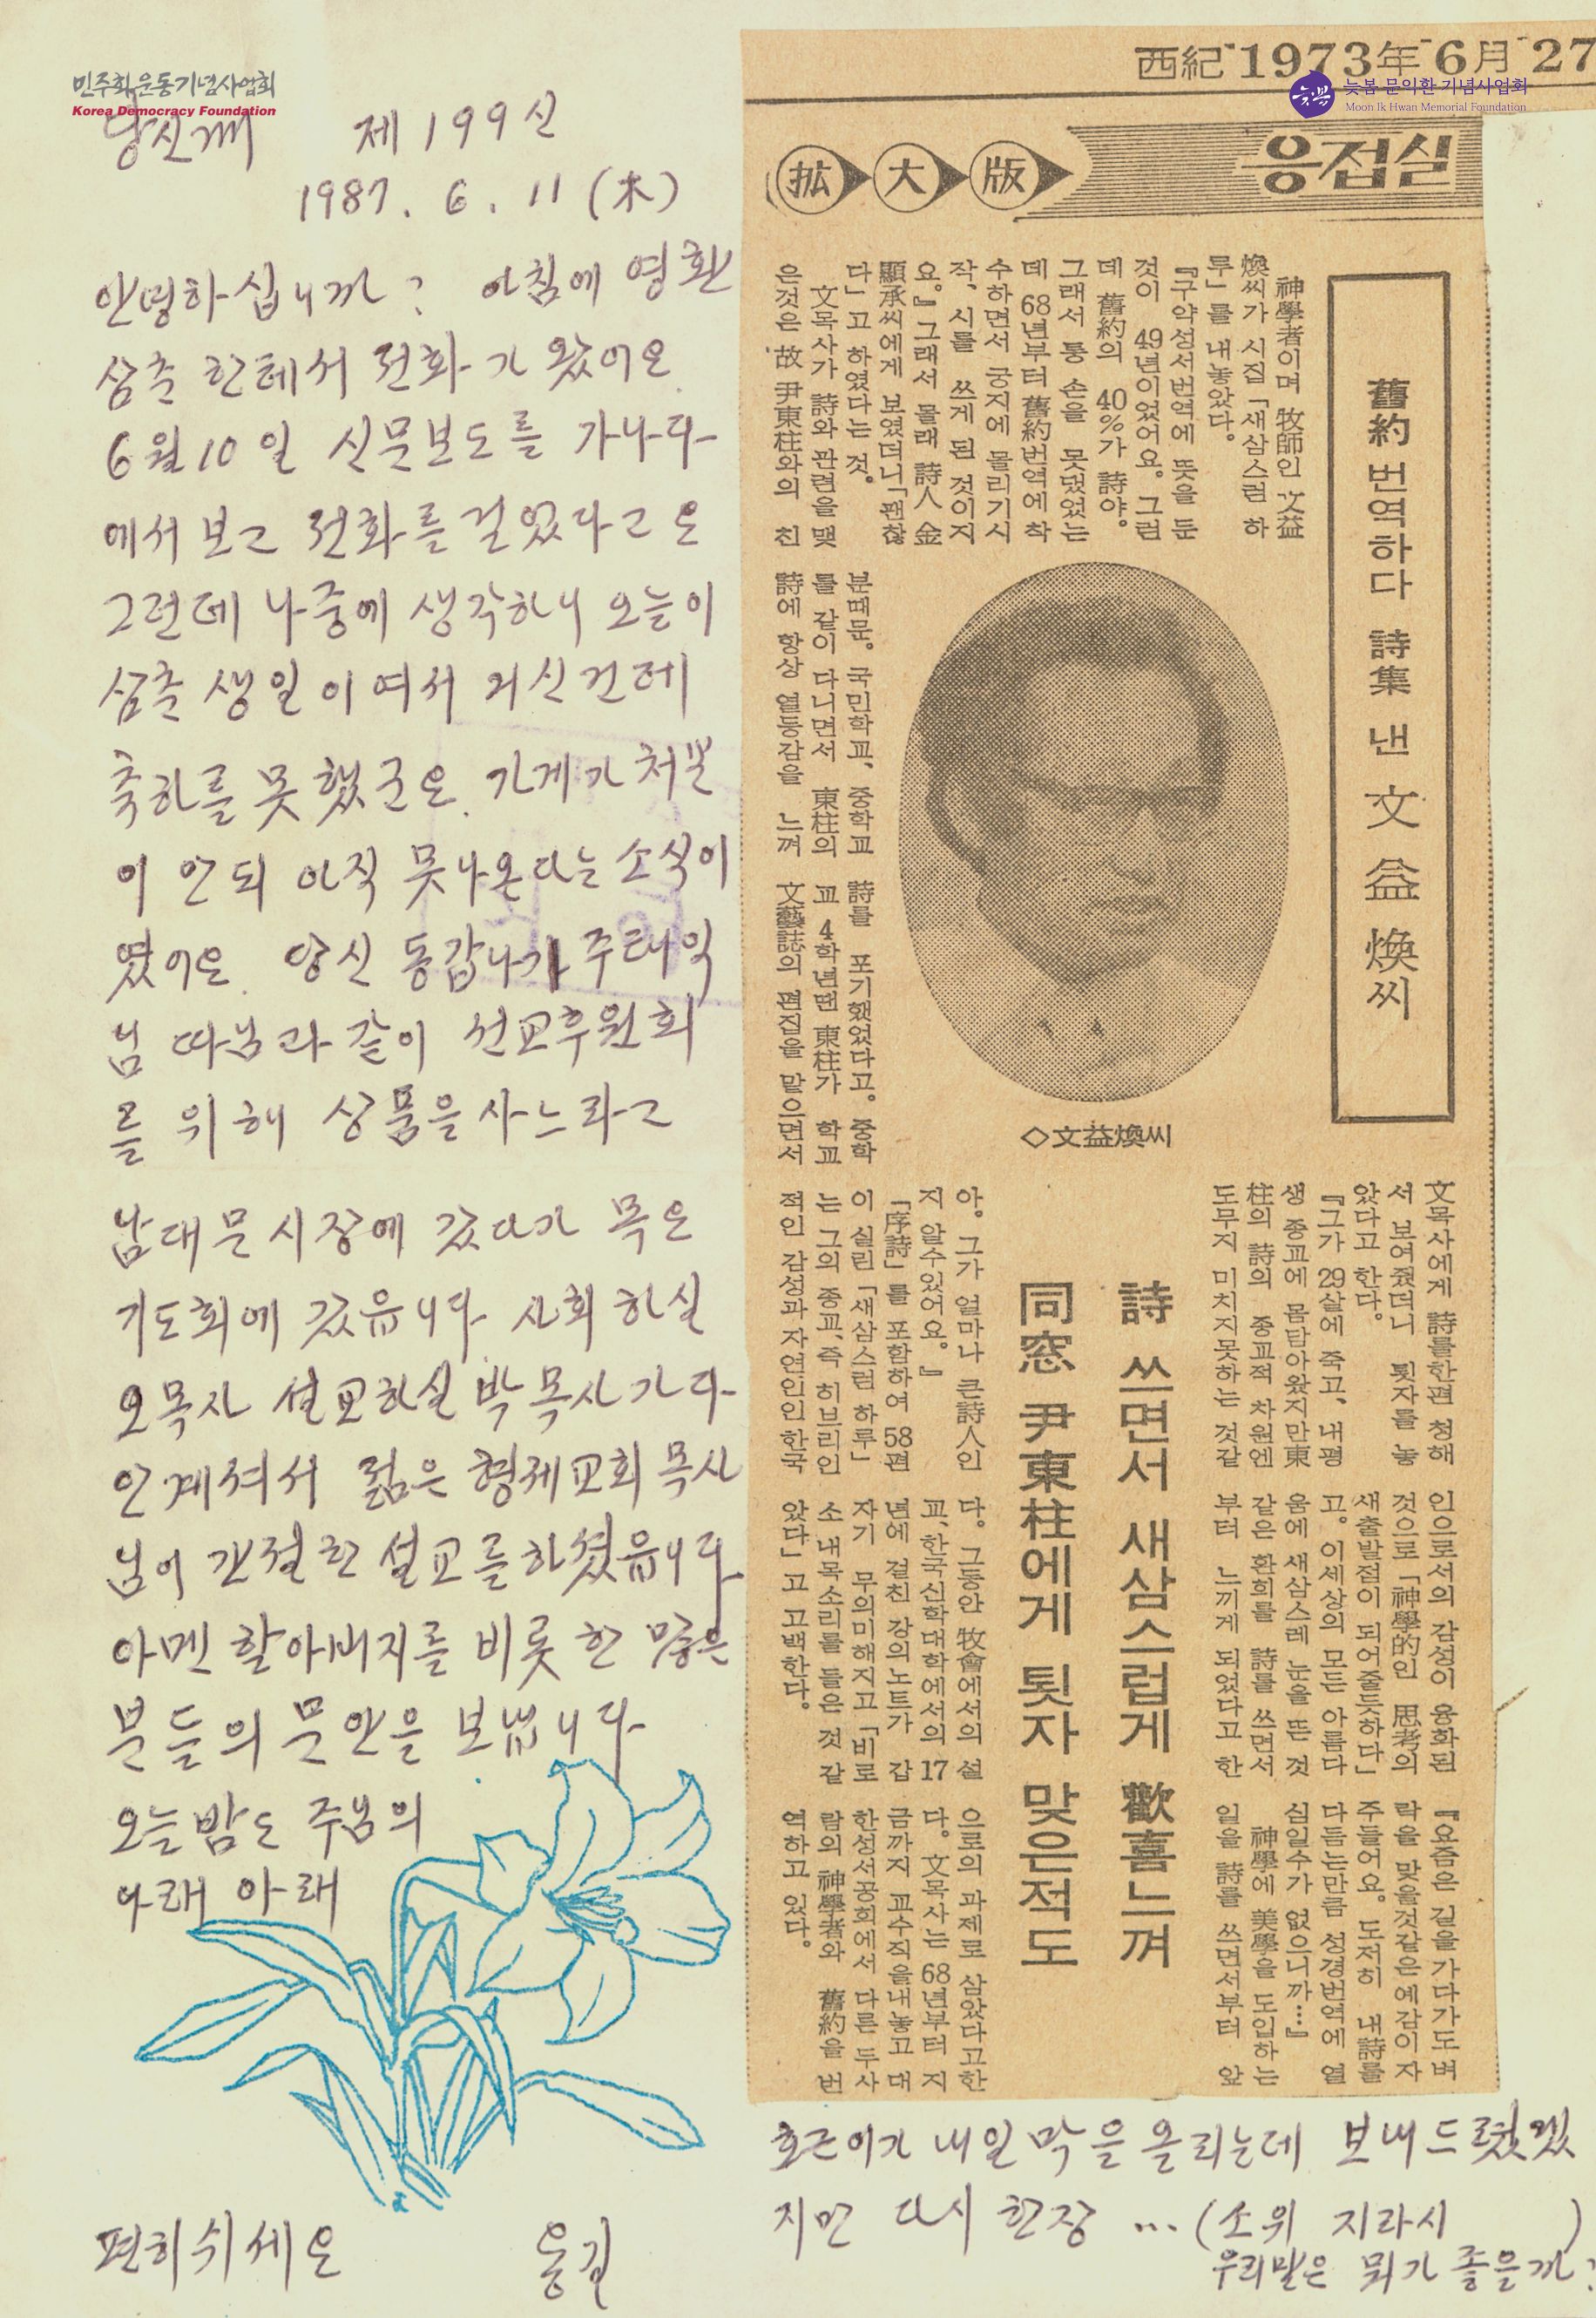 민주화운동기념사업회
Korea Democracy Foundation
당신께 제199신
1987. 6. 11 (木)
안녕하십니까? 아침에 영환
삼촌한테서 전화가 왔어요.
6월10일 신문보도를 가나다
에서 보고 전화를 걸었다고요
그런데 나중에 생각하니 오늘이
삼촌 생일이여서 거신건데
축하를 못했군요. 가게가 처분
이 안되 아직 못나온다는 소식이
였어요. 당신 동갑나기 주태익
님 따님과 같이 선교후원회
를 위해 상품을 사느라고
남대문시장에 갔다가 목요
기도회에 갔읍니다. 사회하실
오목사 설교하실 박목사가 다
안계셔서 젊은 형제교회 목사
님이 간절한 설교를 하셨읍니다.
아멘 할아버지를 비롯한 많은
분들의 문안을 보냅니다
오늘밤도 주님의
아래 아래
편히쉬세요 용길
西紀 1973年 6月 27
늦봄
늦봄 문익환 기념사업회
Moon Ik Hwan Memorial Foundation
拡大版
응접실
舊約 번역하다 詩集 낸 文益煥씨
神學者이며 牧師인 文益
煥씨가 시집 「새삼스럼 하
루」를 내놓았다.
『구약성서번역에 뜻을 둔
것이 49년이었어요. 그런
데 舊約의 40%가 詩야.
그래서 통 손을 못댔었는
데 68년부터 舊約번역에 착
수하면서 궁지에 몰리기시
작, 시를 쓰게 된 것이지
요.』 그래서 몰래 詩人 金
顯承씨에게 보였더니 「괜찮
다」고 하였다는 것.
文목사가 詩와 관련을 맺
은것은 故 尹東柱와의 친
분때문. 국민학교、중학교
를 같이 다니면서 東柱의
詩에 항상 열등감을 느껴
詩를 포기했었다고. 중학
교 4학년땐 東柱가 학교
文藝誌의 편집을 맡으면서
◇文益煥씨
文목사에게 詩를한편 청해
서 보여줬더니 퇴자를 놓
았다고 한다.
『그가 29살에 죽고、내평
생 종교에 몸담아왔지만東
柱의 詩의 종교적 차원엔
도무지 미치지못하는 것같
詩 쓰면서 새삼스럽게 歡喜느껴
同窓 尹東柱에게 퇴자 맞은적도
아. 그가 얼마나 큰詩人인
지 알수있어요.』
「序詩」를 포함하여 58편
이 실린 「새삼스럼 하루」
는 그의 종교、즉 히브리인
적인 감성과 자연인인한국
인으로서의 감성이 융화된
것으로 「神學的인 思考의
새출발점이 되어줄듯하다」
고. 이세상의 모든 아름다
움에 새삼스레 눈을 뜬 것
같은 환희를 詩를 쓰면서
부터 느끼게 되었다고 한
다. 그동안 牧會에서의 설
교、한국신학대학에서의 17
년에 걸친 강의노트가 갑
자기 무의미해지고 「비로
소 내목소리를 들은 것 같
았다」고 고백한다.
『요즘은 길을 가다가도 벼
락을 맞을것같은 예감이자
주들어요. 도저히 내詩를
다듬는만큼 성경번역에 열
심일수가 없으니까…』
神學에 美學을 도입하는
일을 詩를 쓰면서부터 앞
으로의 과제로 삼았다고한
다. 文목사는 68년부터 지
금까지 교수직을내놓고 대
한성서공회에서 다른 두사
람의 神學者와 舊約을 번
역하고 있다.
호근이가 내일 막을 올리는데 보내드렸겠
지만 다시 한장 … (소위 지라시 )
우리말은 뭐가 좋을까?